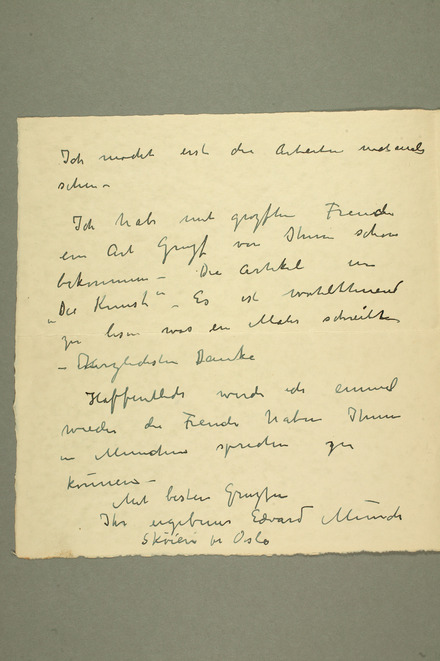 Ich möcht erst die Arbeiten mehrmals
sehen –
Ich habe mit grossten Freude
ein Art Gruss von Ihnen schon
bekommen – Die Artikel in
"Die Kunst" – Es ist wohlthuend
zu lesen was ein Maler schreibt
– Danke
Haffentlich werde ich einmal
wieder die Freude haben Ihnen
in München sprechen zu
können –
Mit besten Grüssen
Ihr ergebener Edvard Munch
Sköien pr Oslo